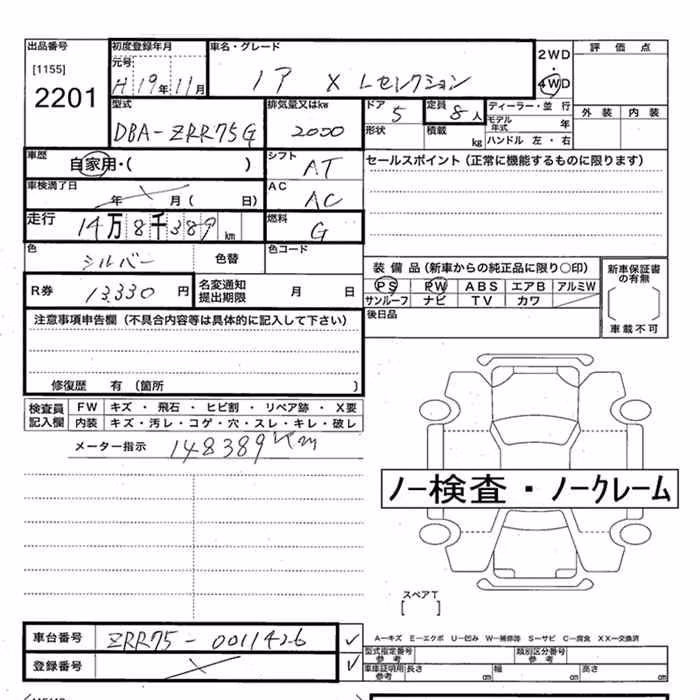 出品番号 初度登録年月 車名・グレード 2WD 評価点
[1155] 元号 4WD
2201 H 19年 11月 ノア X Lセレクション 外装 内装
型式 排気量又はkw ドア 5 定員 8人 ディーラー・並行
DBA-ZRR75G 2000 形状 積載 kg モデル年式 年
ハンドル 左・右
車歴 シフト AT セールスポイント(正常に機能するものに限ります)
自家用・( )
車検満了日 AC AC
年 月( 日)
走行 14万8千389km 燃料 G
色 シルバー 色替 色コード
装備品(新車からの純正品に限り○印) 新車保証書の有無
R券 13,330円 名変通知提出期限 月 日 PS PW ABS エアB アルミW
サンルーフ ナビ TV カワ
後日品 車載不可
注意事項申告欄(不具合内容等は具体的に記入して下さい)
修復歴 有(箇所 )
検査員記入欄 FW キズ・飛石・ヒビ割・リペア跡・X要
内装 キズ・汚レ・コゲ・穴・スレ・キレ・破レ
メーター指示 148389km
ノー検査・ノークレーム
スペアT
[ ]
車台番号 ZRR75-0011426 A-キズ E-エクボ U-凹み W-補修跡 S-サビ C-腐食 XX-交換済
型式指定番号参考 類別区分番号参考
登録番号 車庫証明用参考 長さ cm 幅 cm 高さ cm